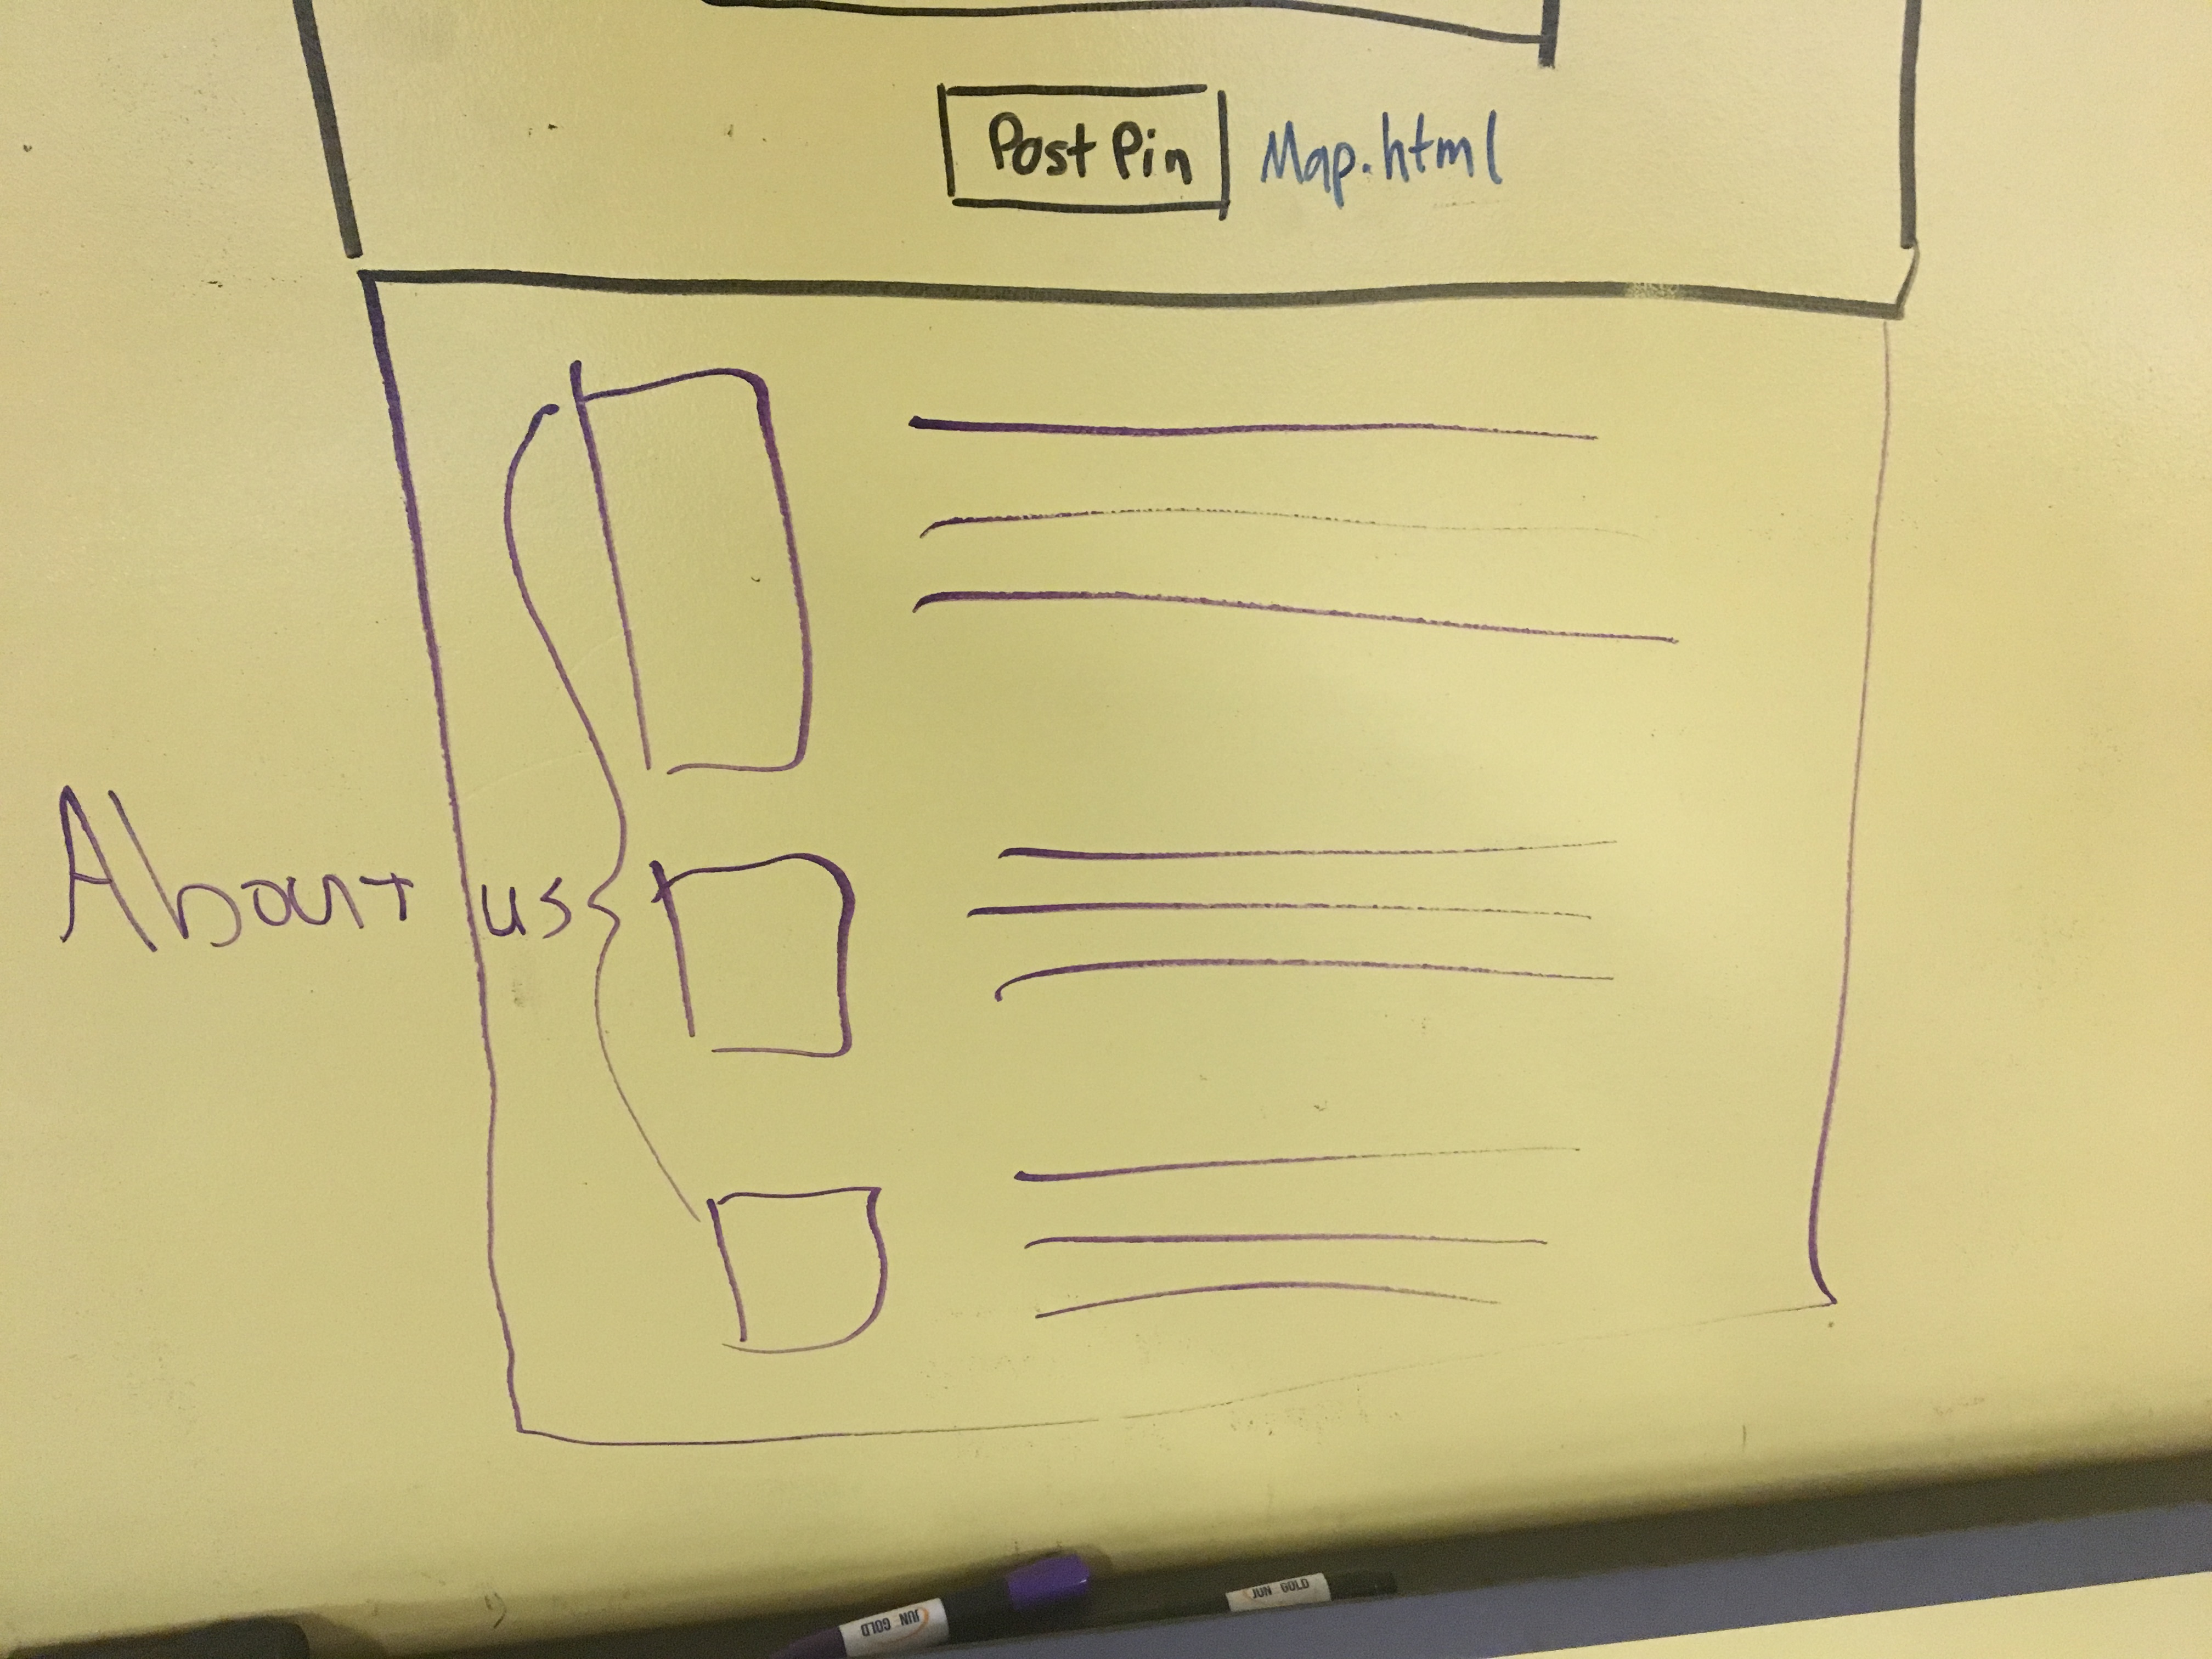 Post Pin
Map.html
About us
JUN GOLD
JUN GOLD